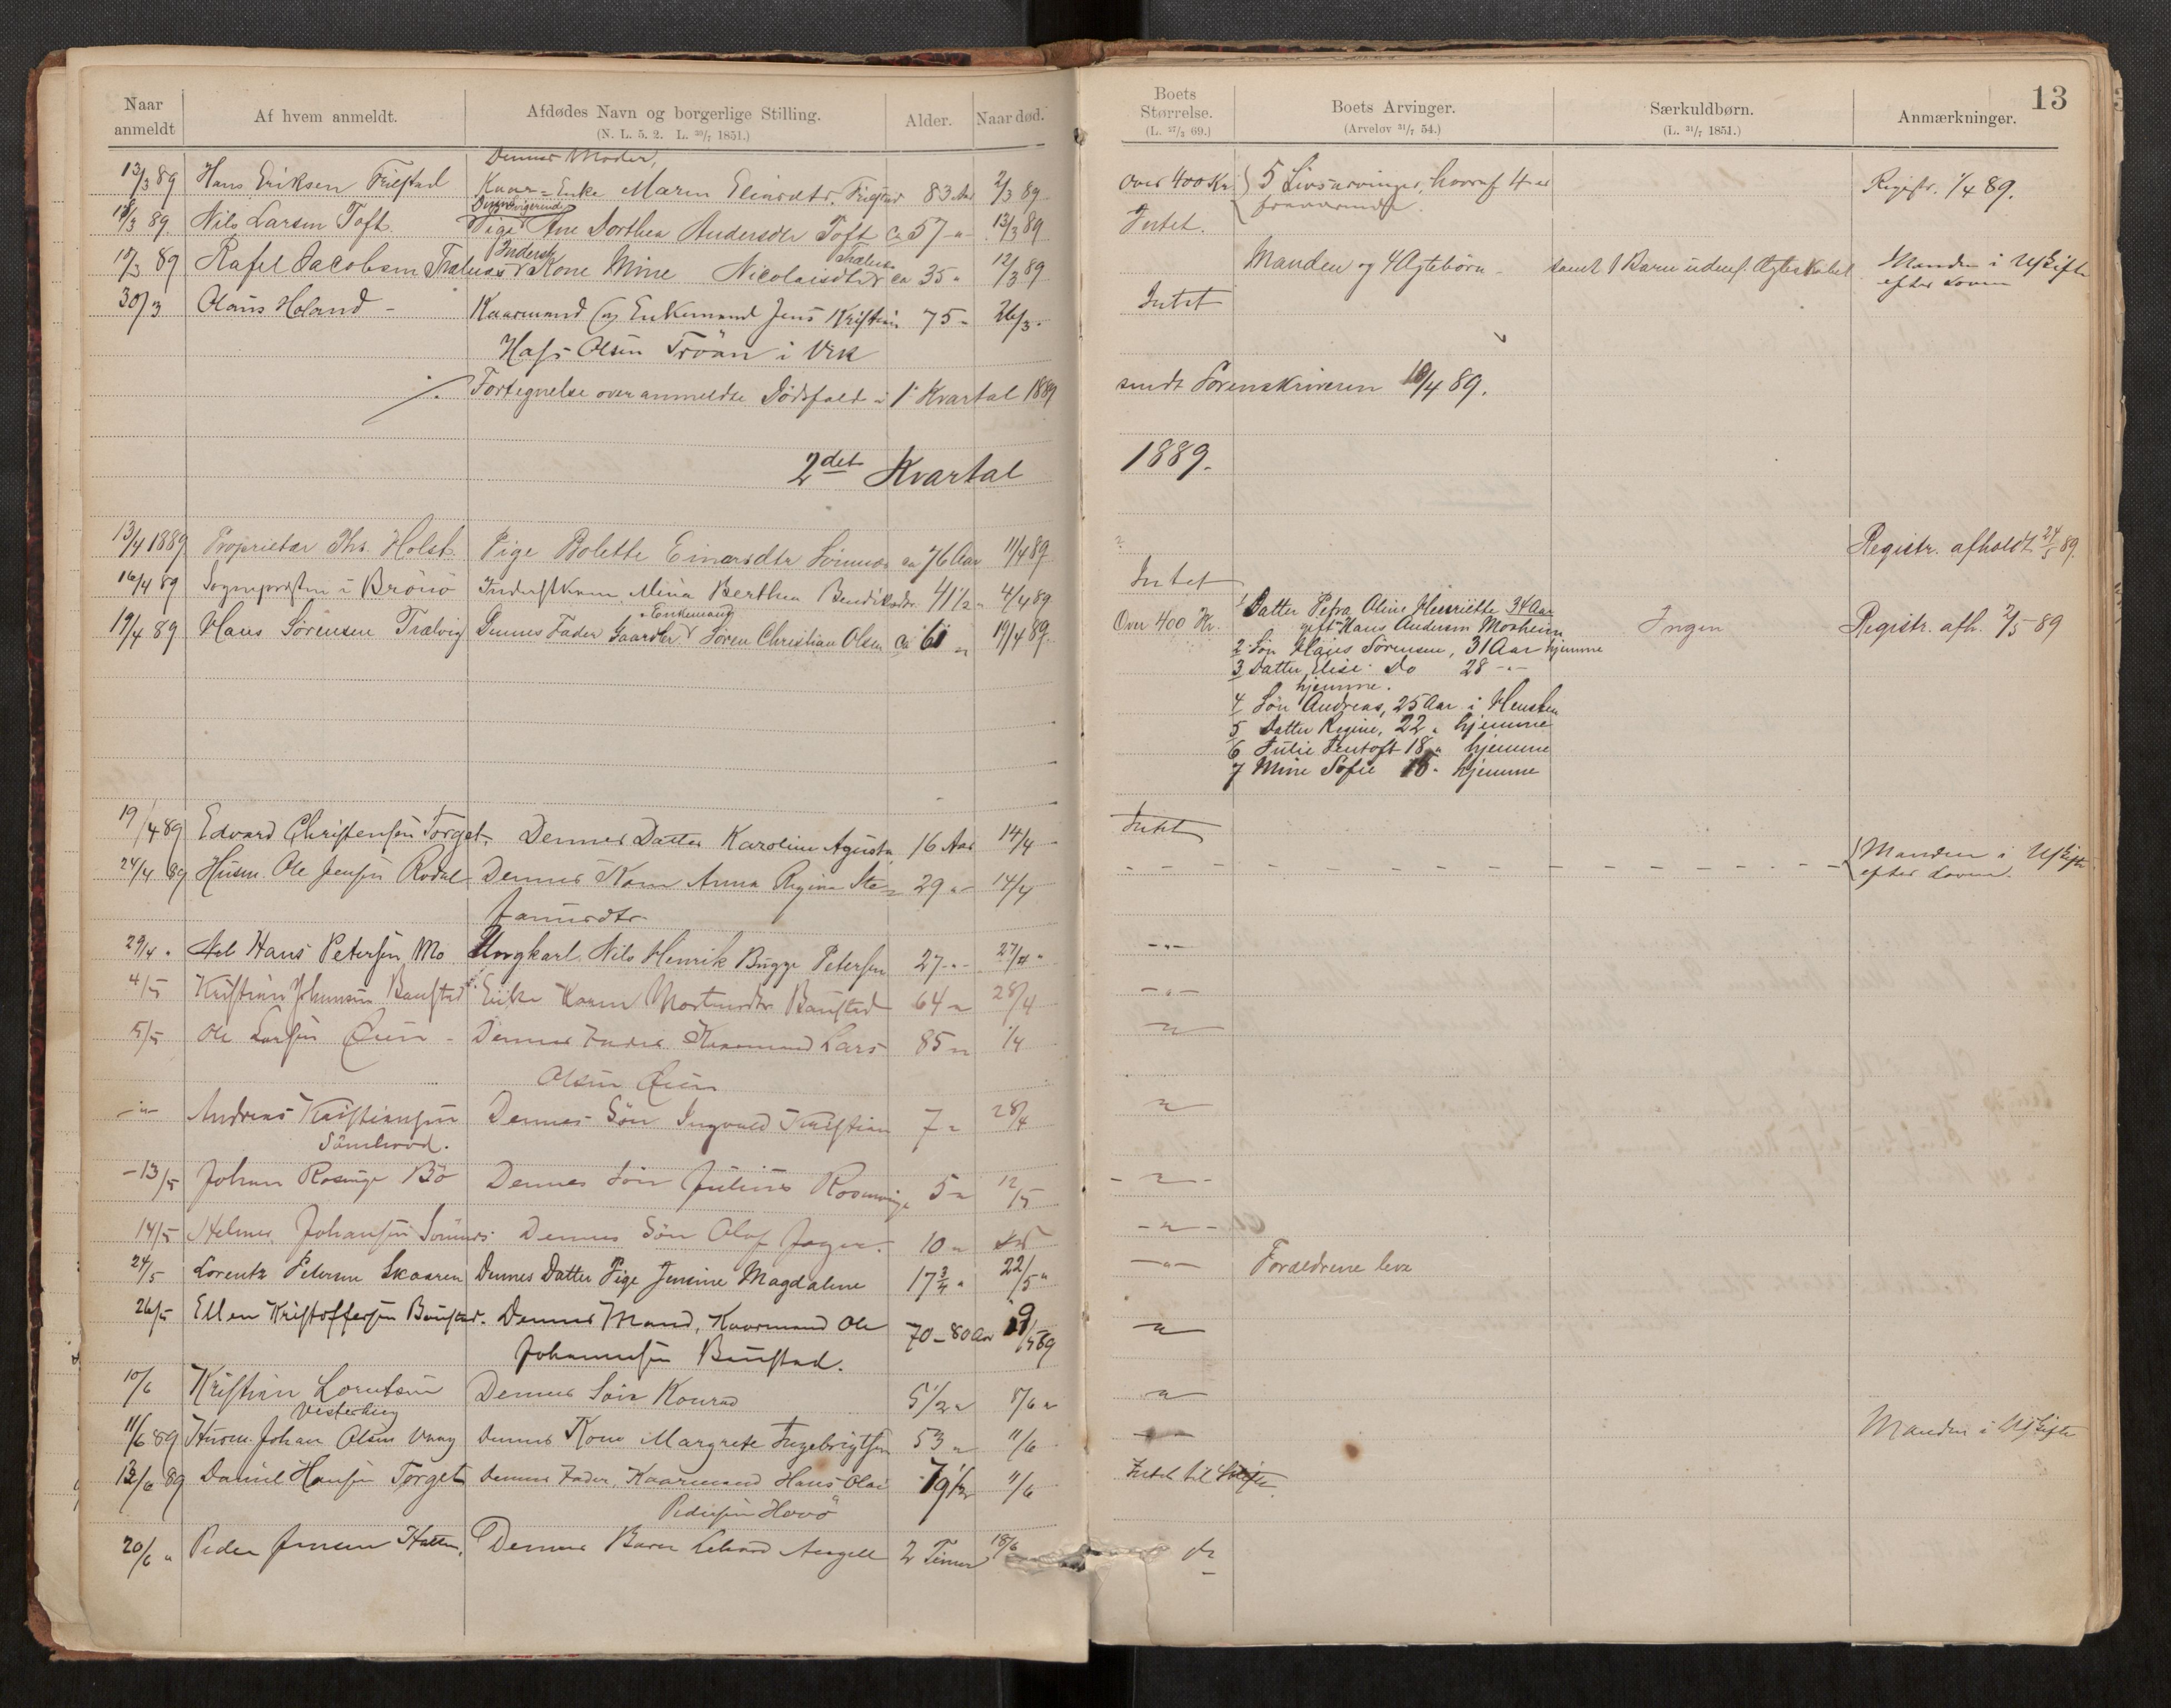 13
Naar anmeldt
Af hvem anmeldt.
Afdødes Navn og borgerlige Stilling.
(N. L. 5. 2. L. 30/7 1851.)
Alder.
Naar død.
Boets Størrelse.
(L. 27/3 69.)
Boets Arvinger.
(Arvelov 31/7 54.)
Særkuldbørn.
(L. 31/7 1851.)
Anmærkninger.
Dennes Moder,
13/3 89 Hans Eriksen Kaar-Enke Maren 83 Aar 2/3 89 Over 400 Kr. 5 Livsarvinger, hvoraf 4 er Registr. 1/4 89.
fraværende.
Dennes Svigerinde
13/3 89. Nils Larsen Toft Pige Ane Dorthea Andersdtr Toft ca 57 " 13/3 89 Intet.
Rafel Jacobsen Kone Mine Nicolaisdtr ca 35 " 12/3 89 Manden og 4 Ægtebørn - samt 1 Barn udenf. Ægteskabet Manden i Uskifte
efter Loven
30/3 Olaus Holand - Kaarmand og Enkemand Jens Kristian 75 " 26/3 - Intet
Olsen Troan i Vik
Fortegnelse over anmeldte Dødsfald i 1' Kvartal 1889 sendt Sorenskriveren 10/4 89.
2det Kvartal 1889.
13/4 1889 Proprietær Chr. Holst Pige Bolette Einersdtr ca 76 Aar 11/4 89 Registr. afholdt 24/5 89.
16/4 89 Sognepresten i Brönö Mina Berthea 41 1/2 " 4/4 89 Intet
Enkemand
19/4 89 Hans Sörensen Trælvig Dennes Fader Gaardbr Sören Christian Olsen Ca 61 " 19/4 89 Over 400 Kr. 1 Datter Petra Oline Henriette 34 Aar Ingen Registr. afh. 2/5 89
gift Hans Andersen Mosheim
2 Søn Hans Sörensen, 31 Aar hjemme
3 Datter Elise Do 28 - " -
hjemme.
4 Søn Andreas, 25 Aar i
5 Datter Regine, 22 " hjemme
6 Julie 18 " hjemme
7 Mine Sofie 15 - hjemme
19/4 89 Edvard Christensen Torget. Dennes Datter Karoline Agusta 16 Aar 14/4 Intet
24/4 89 Husm. Ole Jensen Rodal Dennes Kone Anna Regine Ste- 29 " 14/4 - - - Manden i Uskifte
fanusdtr efter Loven.
29/4 " Hans Petersen Mo Ungkarl Nils Henrik Bugge Petersen 27 " 27/4 " - " -
4/5 Kristian Johansen Baustad Enke Karen Baustad 64 " 28/4 - " -
5/5 Ole Larsen - Dennes Fader Kaarmand Lars 85 " 1/4 "
Olsen
- " - Andreas Kristiansen Dennes Søn Ingvald Kristian 7 " 28/4 "
- 13/5 Johan Rosinge Bö Dennes Søn Julius 5 " 12/5 - " -
14/5 Helmer Johansen Dennes Søn Olaf 10 " - " -
24/5 Lorentz Petersen Skaaren Dennes Datter Pige Jensine Magdalene 17 3/4 " 22/5 " - " - Forældrene leve
26/5 Ellen Kristoffersen Baustad. Dennes Mand, Kaarmand Ole 70-80 Aar "
Johannesen Baustad.
10/6 Kristian Lorntsen Dennes Søn Konrad 5 1/2 " 8/6 " "
11/6 89 Husm. Johan Olsen Dennes Kone Margrete Ingebrigtsen 53 " 11/6 Manden i Uskifte
Daniel Hansen Torget Dennes Fader, Kaarmand Hans Olai 79 1/2 11/6 Intet til Skifte
Pedersen
20/6 " Peder Jensen Dennes Barn 2 Timer 18/6 do